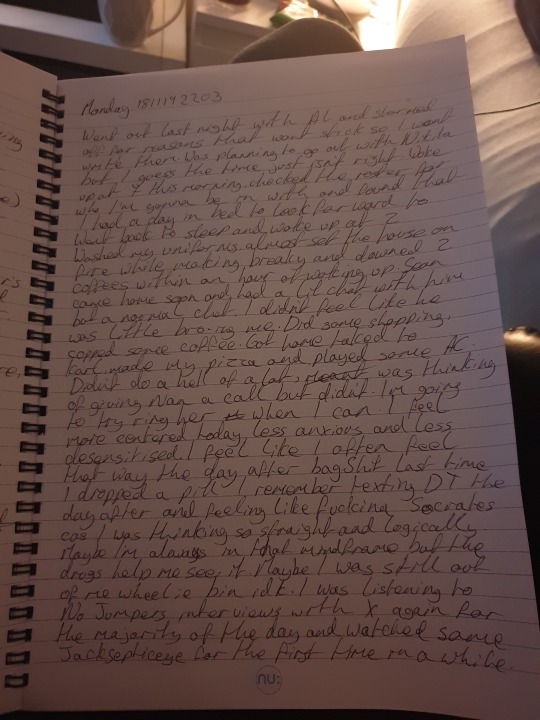 Monday 18/11/19 2203
Went out last night with AL and starved
off for reasons that wont stick so I wont
write them. Was planning to go out with Nikita
but I guess the time just isn't right. Woke
up at 7 this morning, checked the roster for
who I'm gonna be on with and found that
I had a day in bed to look forward to
Went back to sleep and woke up at 2
Washed my uniforms, almost set the house on
fire while making breaky and downed 2
coffees within an hour of waking up. Sean
came home soon and had a lil chat with him
but a normal chat. I didn't feel like he
was little bro-ing me. Did some shopping,
copped some coffee. Got home talked to
Karl, made my pizza and played some AC.
Didn't do a hell of a lot, was thinking
of giving Nan a call but didn't. I'm going
to try ring her when I can. I feel
more centered today, less anxious and less
desensitised. I feel like I often feel
that way the day after bag. Shit last time
I dropped a pill I remember texting DT the
day after and feeling like fucking Socrates
cos I was thinking so straight and logically
Maybe I'm always in that mindframe but the
drugs help me see it. Maybe I was still out
of me wheelie bin idk. I was listening to
No Jumpers interviews with X again for
the majority of the day and watched some
Jacksepticeye for the first time in a while.
nu: